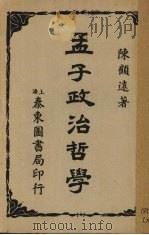 陳顧遠著
孟子政治哲學
上海
泰東圖書局印行